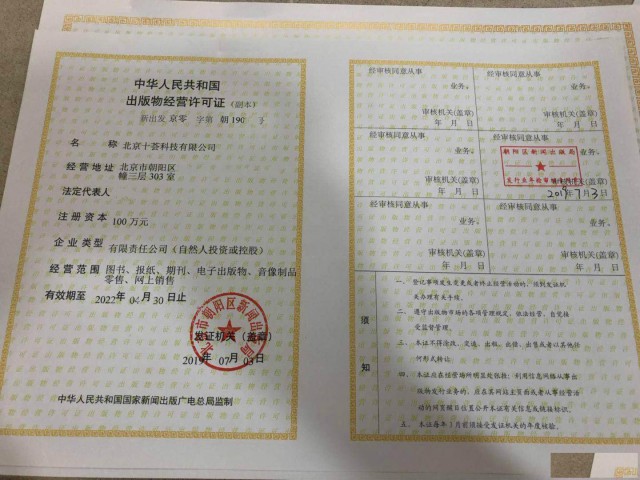 中华人民共和国
出版物经营许可证（副本）
新出发 京零 字第 朝190 号
名 称 北京十荟科技有限公司
经营地址 北京市朝阳区
幢三层303室
法定代表人
注册资本 100万元
企业类型 有限责任公司（自然人投资或控股）
经营范围 图书、报纸、期刊、电子出版物、音像制品
零售、网上销售
有效期至 2022年 04月30日止
北京市朝阳区新闻出版局
发证机关（盖章）
2019年 07月 03日
中华人民共和国国家新闻出版广电总局监制
经审核同意从事
业务。
审核机关(盖章)
年 月 日
经审核同意从事
业务。
审核机关(盖章)
年 月 日
经审核同意从事
业务。
审核机关(盖章)
年 月 日
朝阳区新闻出版局
业务。
2019年7月3日
经审核同意从事
业务。
审核机关(盖章)
年 月 日
经审核同意从事
业务。
审核机关(盖章)
年 月 日
须知
一、登记事项发生变更或者终止经营活动的，须到发证机
关办理有关手续。
二、遵守出版物市场的各项管理规定，依法经营，自觉接
受监督管理。
三、本证不得涂改、变造、出租、出借、出售或者以其他任
何形式转让。
四、本证应在经营场所明显处张挂；利用信息网络从事出
版物发行业务的，应在其网站主页面或者从事经营活
动的网页醒目位置公开本证有关信息或链接标识。
五、本证每年3月前须接受发证机关的年度核验。